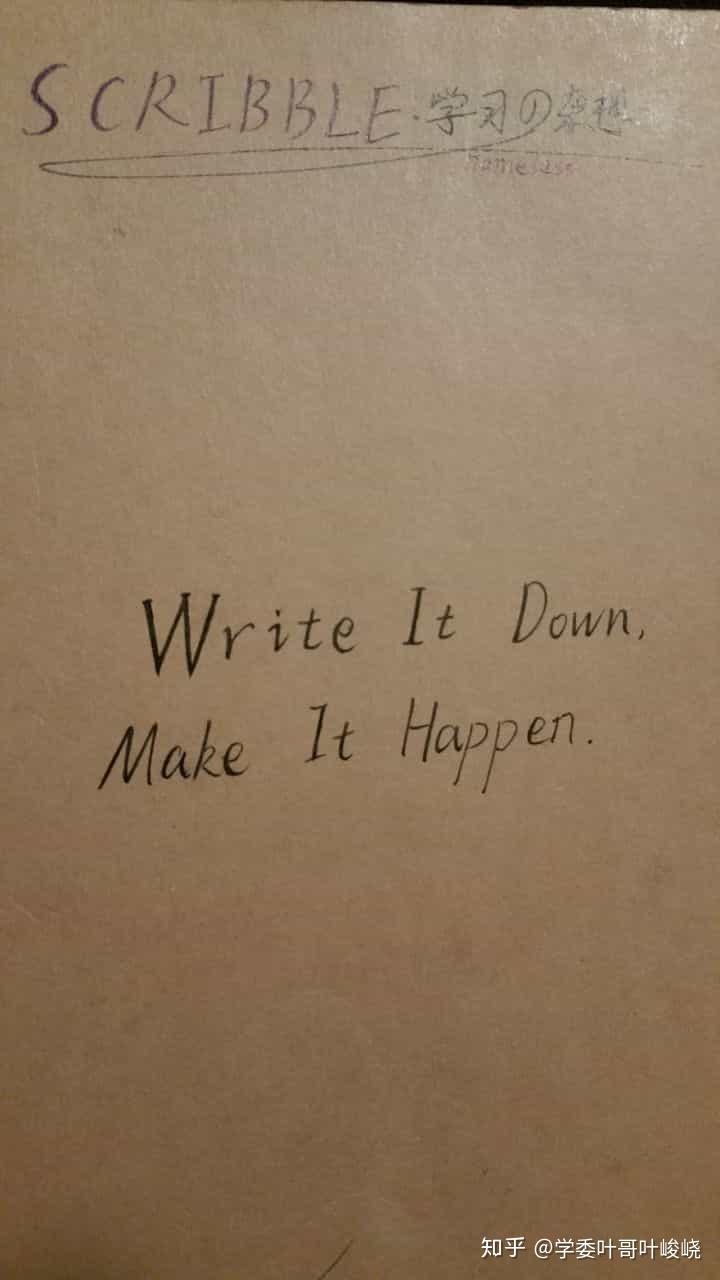 SCRIBBLE·学习の杂想
nameless
Write It Down,
Make It Happen.
知乎 @学委叶哥叶峻峣